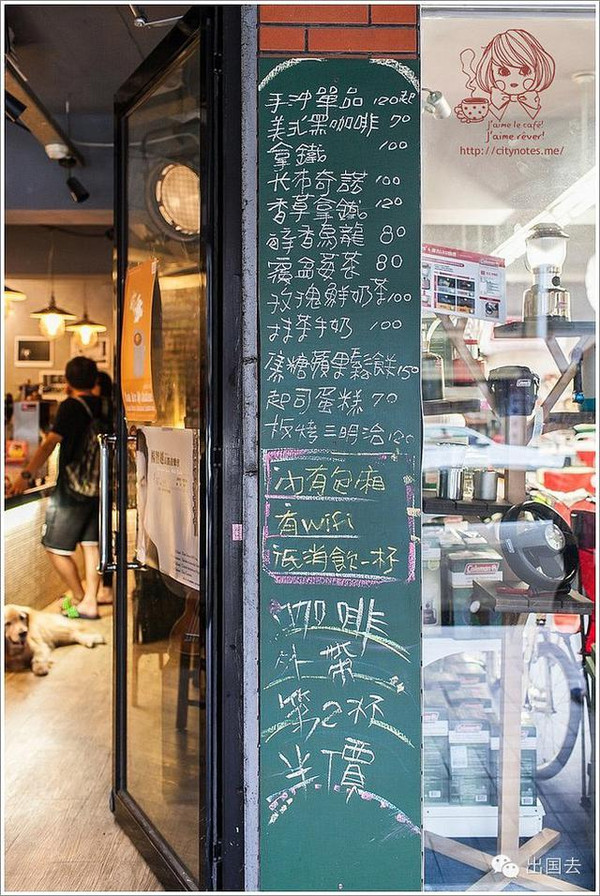 手沖單品 120起
美式黑咖啡 70
拿鐵 100
卡布奇諾 100
香草拿鐵 120
醇香烏龍 80
覆盆莓茶 80
玫瑰鮮奶茶 100
抹茶牛奶 100
焦糖蘋果鬆餅 150
起司蛋糕 70
板烤三明治 120
內有包廂
有wifi
低消飲一杯
咖啡
外帶
第2杯
半價
j'aime le café!
j'aime rêver!
http://citynotes.me/
Coleman
出国去